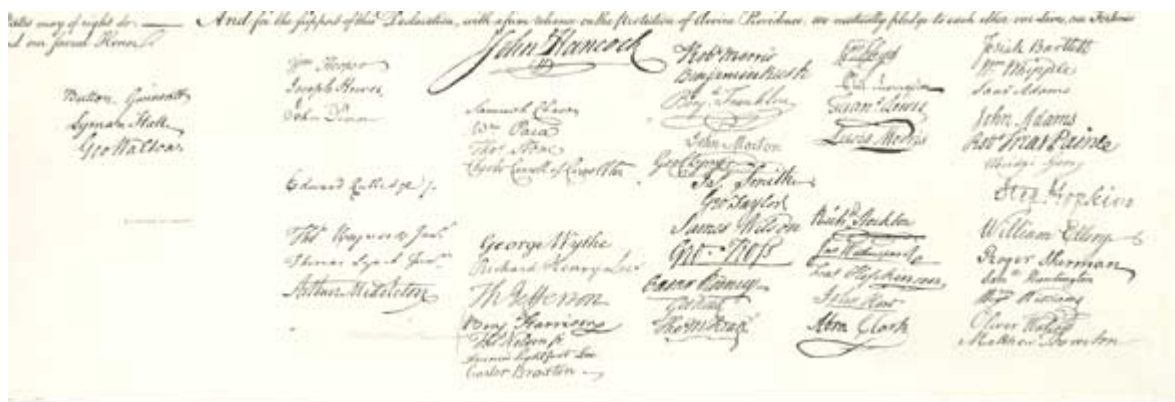 States may of right do. — And for the support of this Declaration, with a firm reliance on the Protection of divine Providence, we mutually pledge to each other our Lives, our Fortunes
and our sacred Honor.
Button Gwinnett
Lyman Hall
Geo Walton
Wm Hooper
Joseph Hewes
John Penn
Edward Rutledge
Thos Heyward Junr
Thomas Lynch Junr
Arthur Middleton
John Hancock
Samuel Chase
Wm Paca
Thos Stone
Charles Carroll of Carrollton
George Wythe
Richard Henry Lee
Th Jefferson
Benj Harrison
Thos Nelson jr
Francis Lightfoot Lee
Carter Braxton
Robt Morris
Benjamin Rush
Benj Franklin
John Morton
Geo Clymer
Jas Smith
Geo Taylor
James Wilson
Geo. Ross
Caesar Rodney
Geo Read
Tho M:Kean
Wm Floyd
Phil. Livingston
Frans Lewis
Lewis Morris
Richd Stockton
Jno Witherspoon
Fras Hopkinson
John Hart
Abra Clark
Josiah Bartlett
Wm Whipple
Saml Adams
John Adams
Robt Treat Paine
Elbridge Gerry
Step Hopkins
William Ellery
Roger Sherman
Saml Huntington
Wm Williams
Oliver Wolcott
Matthew Thornton